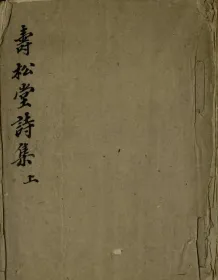 壽松堂詩集上